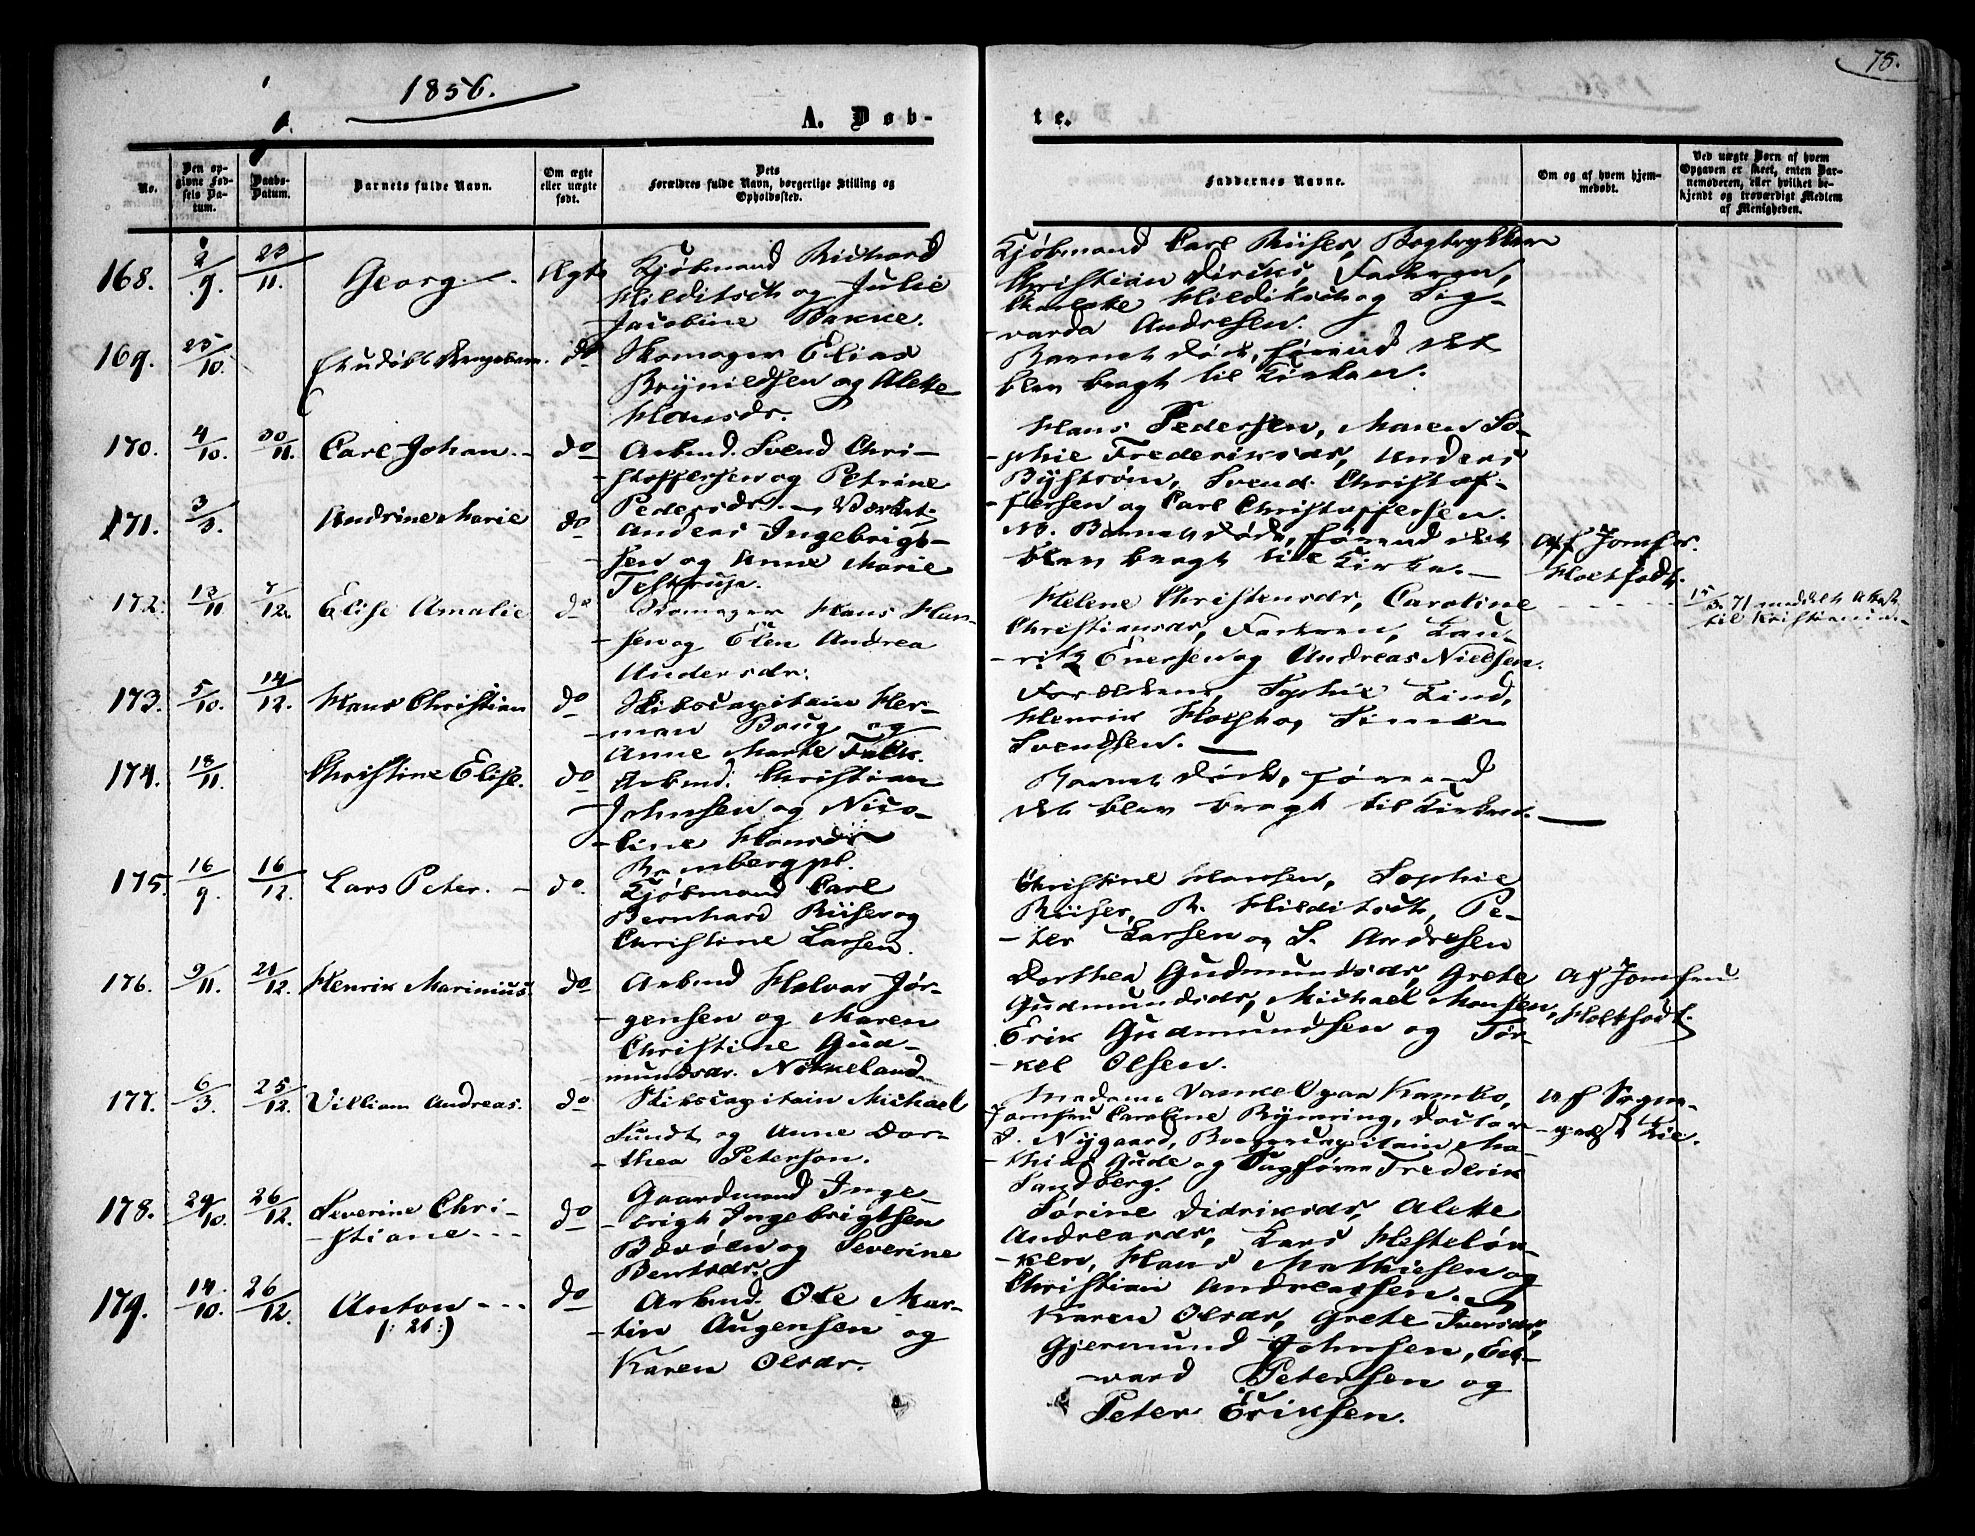 1856.
75.
A. Døb-
te.
No.
Den op-
givne Fød-
sels Da-
tum.
Daabs-
Datum.
Barnets fulde Navn.
Om ægte
eller uægte
født.
Dets
Forældres fulde Navn, borgerlige Stilling og
Opholdssted.
Faddernes Navne.
Om og af hvem hjem-
medøbt.
Ved uægte Børn af hvem
Opgaven er skeet, enten Bar-
nemoderen, eller hvilket be-
kjendt og troværdigt Medlem
af Menigheden.
168.
2/9.
23/11.
Georg
Ægte
Kjøbmand Richard
Hilditsch og Julie
Jacobine Bakke.
Kjøbmand Carl Riiser, Bogtrykker
Christian Diriks, Faderen,
Hilditsch og Sig-
varda Andresen.
169.
25/10.
do
Skomager Elias
Brynildsen og Alette
Hansdr.
Barnet døde, førend det
blev bragt til Kirken.
170.
4/10.
30/11.
Carl Johan.
do
Arbmd. Svend Chri-
stoffersen og Petrine
Pedersdr.
Hans Pedersen, Maren So-
phie Frederiksdr, Anders
Byström, Svend Christof-
fersen og Carl Christoffersen.
171.
3/3.
Andrine Marie
do
Anders Ingebrigt-
sen og Anne Marie
N. Barnet døde, førend det
blev bragt til Kirke.
Af Jomfr.
Holtfodt.
172.
13/11
7/12.
Elise Amalie
do
Skomager Hans Han-
sen og Elen Andrea
Andersdr.
Helene Christensdr, Caroline
Christiansdr, Faderen, Lau-
ritz Enersen og Andreas Nielsen.
71 meddelt Attest
til Kristiania.
173.
5/10.
14/12.
Hans Christian
do
Skibscapitain Her-
man Boug og
Anne Marte Falk.
Forældrene, Sophie Lind,
Henrik Holst og Simen
Svendsen.
174.
18/11.
Christine Elise.
do
Arbmd. Christian
Johnsen og Nico-
line Hansdr
Rambergpl.
Barnet døde, førend
det blev bragt til Kirken.
175.
16/9.
16/12.
Lars Peter.
do.
Kjøbmand Carl
Bernhard Riiser og
Christine Larsen.
Christine Hansen, Sophie
Riiser, R. Hilditsch, Pe-
ter Larsen og S. Andresen
176.
9/11.
21/12.
Henrik Marinius.
do
Arbmd Halvor Jør-
gensen og Maren
Christine Gud-
mundsdr. Nøkkeland.
Dorthea Gudmundsdr, Grete
Gudmundsdr, Michael Monsen,
Erik Gudmundsen og Tor-
kel Olsen.
Af Jomfru
Holtfodt.
177.
6/3.
25/12.
Villiam Andreas.
do
Skibscapitain Michael
Sundt og Anne Dor-
thea Peterson.
Madame Vankel paa Kambo,
Jomfru Caroline Rynning, Doctor
Nygaard, Borgercapitain Ma-
thias Gude og Sagfører Frederik
Sandberg.
Af Sogne-
præst Lie.
178.
29/10.
26/12.
Severine Chri-
stiane
do
Gaardmand Inge-
brigt Ingebrigtsen
Bævølen og Severine
Bentsdr.
Sørine Didriksdr, Alette
Andreasdr, Lars Hesteløk-
ken, Hans Mathiesen og
Christian Andreassen.
179.
14/10.
26/12.
Anton
(: 26 :)
do
Arbmd. Ole Mar-
tin Augensen og
Karen Olsdr.
Karen Olsdr, Grete Iversdr,
Gjermund Johnsen, Ed-
vard Petersen og
Peter Eriksen.